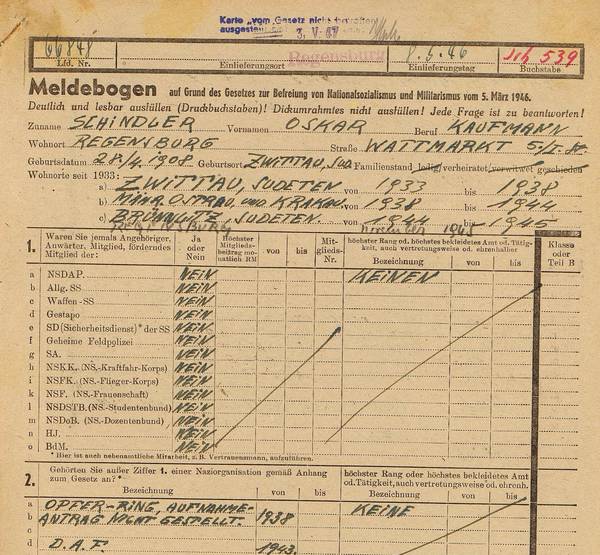 Karte „vom Gesetz nicht betroffen"
ausgestellt 3. V. 47
66848 Regensburg 8.5.46 Sch 539
Lfd. Nr. Einlieferungsort Einlieferungstag Buchstabe
Meldebogen auf Grund des Gesetzes zur Befreiung von Nationalsozialismus und Militarismus vom 5. März 1946.
Deutlich und lesbar ausfüllen (Druckbuchstaben)! Dickumrahmtes nicht ausfüllen! Jede Frage ist zu beantworten!
Zuname SCHINDLER Vornamen OSKAR Beruf KAUFMANN
Wohnort REGENSBURG Straße WATTMARKT 5/I
Geburtsdatum 28/4.1908 Geburtsort ZWITTAU, SUD. Familienstand ledig/verheiratet/verwitwet geschieden
Wohnorte seit 1933:
a) ZWITTAU, SUDETEN von 1933 bis 1938
b) MÄHR. OSTRAU, UND. KRAKAU. von 1938 bis 1944
c) BRÜNNLITZ, SUDETEN. von 1944 bis 1945
REGENSBURG November 1945
1. Waren Sie jemals Angehöriger, Anwärter, Mitglied, förderndes Mitglied der: Ja oder Nein Höchster Mitgliedsbeitrag monatlich RM von bis Mitglieds-Nr. höchster Rang od. höchstes bekleidetes Amt od. Tätigkeit, auch vertretungsweise od. ehrenhalber Bezeichnung von bis Klasse oder Teil B
a NSDAP. NEIN KEINEN
b Allg. SS NEIN
c Waffen-SS NEIN
d Gestapo NEIN
e SD (Sicherheitsdienst)* der SS NEIN
f Geheime Feldpolizei NEIN
g SA. NEIN
h NSKK. (NS.-Kraftfahr-Korps) NEIN
i NSFK. (NS.-Flieger-Korps) NEIN
k NSF. (NS.-Frauenschaft) NEIN
l NSDSTB. (NS.-Studentenbund) NEIN
m NSDoB. (NS.-Dozentenbund) NEIN
n HJ. NEIN
o BdM. NEIN
* Hier ist auch nebenamtliche Mitarbeit, z. B. Vertrauensmann, aufzuführen.
2. Gehörten Sie außer Ziffer 1. einer Naziorganisation gemäß Anhang zum Gesetz an?* höchster Rang oder höchstes bekleidetes Amt od. Tätigkeit, auch vertretungsweise od. ehrenh.
Bezeichnung von bis Bezeichnung von bis
a OPFER-RING, AUFNAHME- KEINE
b ANTRAG NICHT GESTELLT. 1938
c
d D.A.F. 1943.